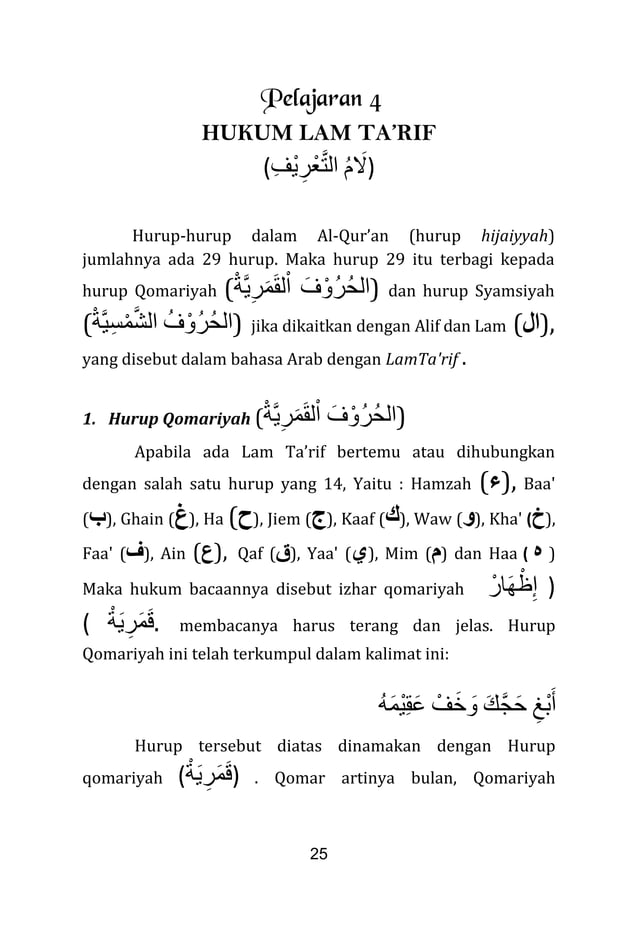 Pelajaran 4
HUKUM LAM TA’RIF
(لَامُ التَّعْرِيْفِ)
Hurup-hurup dalam Al-Qur’an (hurup hijaiyyah)
jumlahnya ada 29 hurup. Maka hurup 29 itu terbagi kepada
hurup Qomariyah (الحُرُوْفَ اْلقَمَرِيَّةْ) dan hurup Syamsiyah
(الحُرُوْفُ الشَّمْسِيَّةْ) jika dikaitkan dengan Alif dan Lam (ال),
yang disebut dalam bahasa Arab dengan LamTa’rif .
1. Hurup Qomariyah (الحُرُوْفَ اْلقَمَرِيَّةْ)
Apabila ada Lam Ta’rif bertemu atau dihubungkan
dengan salah satu hurup yang 14, Yaitu : Hamzah (ء), Baa'
(ب), Ghain (غ), Ha (ح), Jiem (ج), Kaaf (ك), Waw (و), Kha' (خ),
Faa' (ف), Ain (ع), Qaf (ق), Yaa' (ي), Mim (م) dan Haa ( ه )
Maka hukum bacaannya disebut izhar qomariyah ( إِظْهَارْ
قَمَرِيَةْ ). membacanya harus terang dan jelas. Hurup
Qomariyah ini telah terkumpul dalam kalimat ini:
أَبْغِ حَجَّكَ وَخَفْ عَقِيْمَهُ
Hurup tersebut diatas dinamakan dengan Hurup
qomariyah (قَمَرِيَةْ) . Qomar artinya bulan, Qomariyah
25